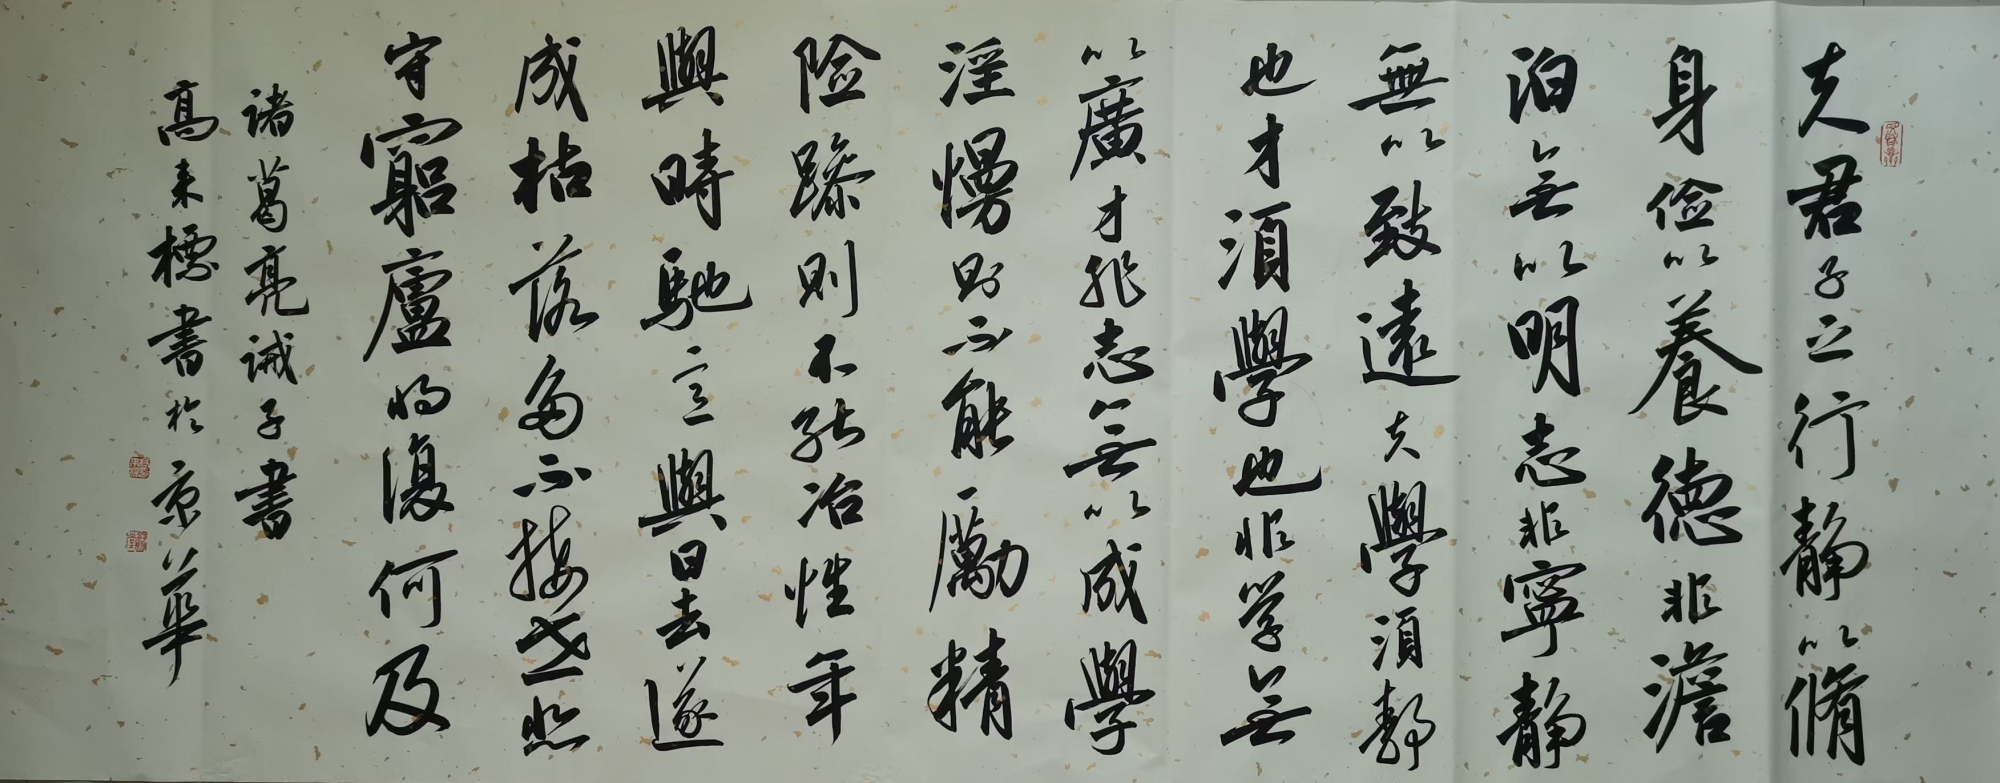 夫君子之行静以脩
身俭以養德非澹
泊无以明志非寧静
無以致遠夫學須静
也才須學也非学无
以廣才非志无以成學
淫慢则不能勵精
险躁则不能冶性年
與時馳意與日去遂
成枯落多不接世悲
守窮廬将復何及
诸葛亮诫子書
高来標書於京華